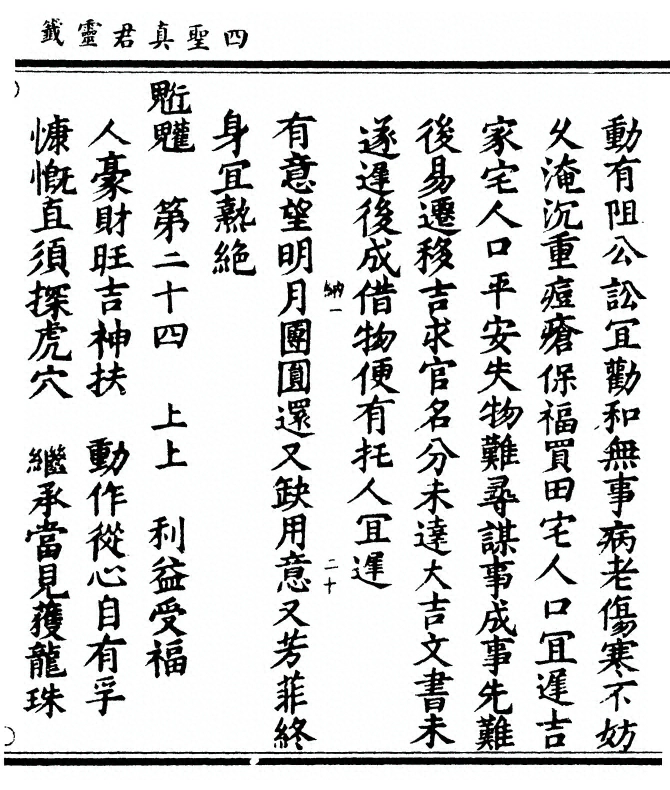 四聖真君靈籤
動有阻公訟冝勸和無事病老傷寒不妨
久淹沉重痘瘡保福買田宅人口冝遲吉
家宅人口平安失物難尋謀事成事先難
後易遷移吉求官名分未達大吉文書未
遂遲後成借物便有托人冝遲
納一
二十
有意望明月團圓還又缺用意又芳菲終
身冝熱絕
魁魒 第二十四 上上 利益受福
人豪財旺吉神扶 動作從心自有孚
慷慨直須探虎穴 繼承當見獲龍珠